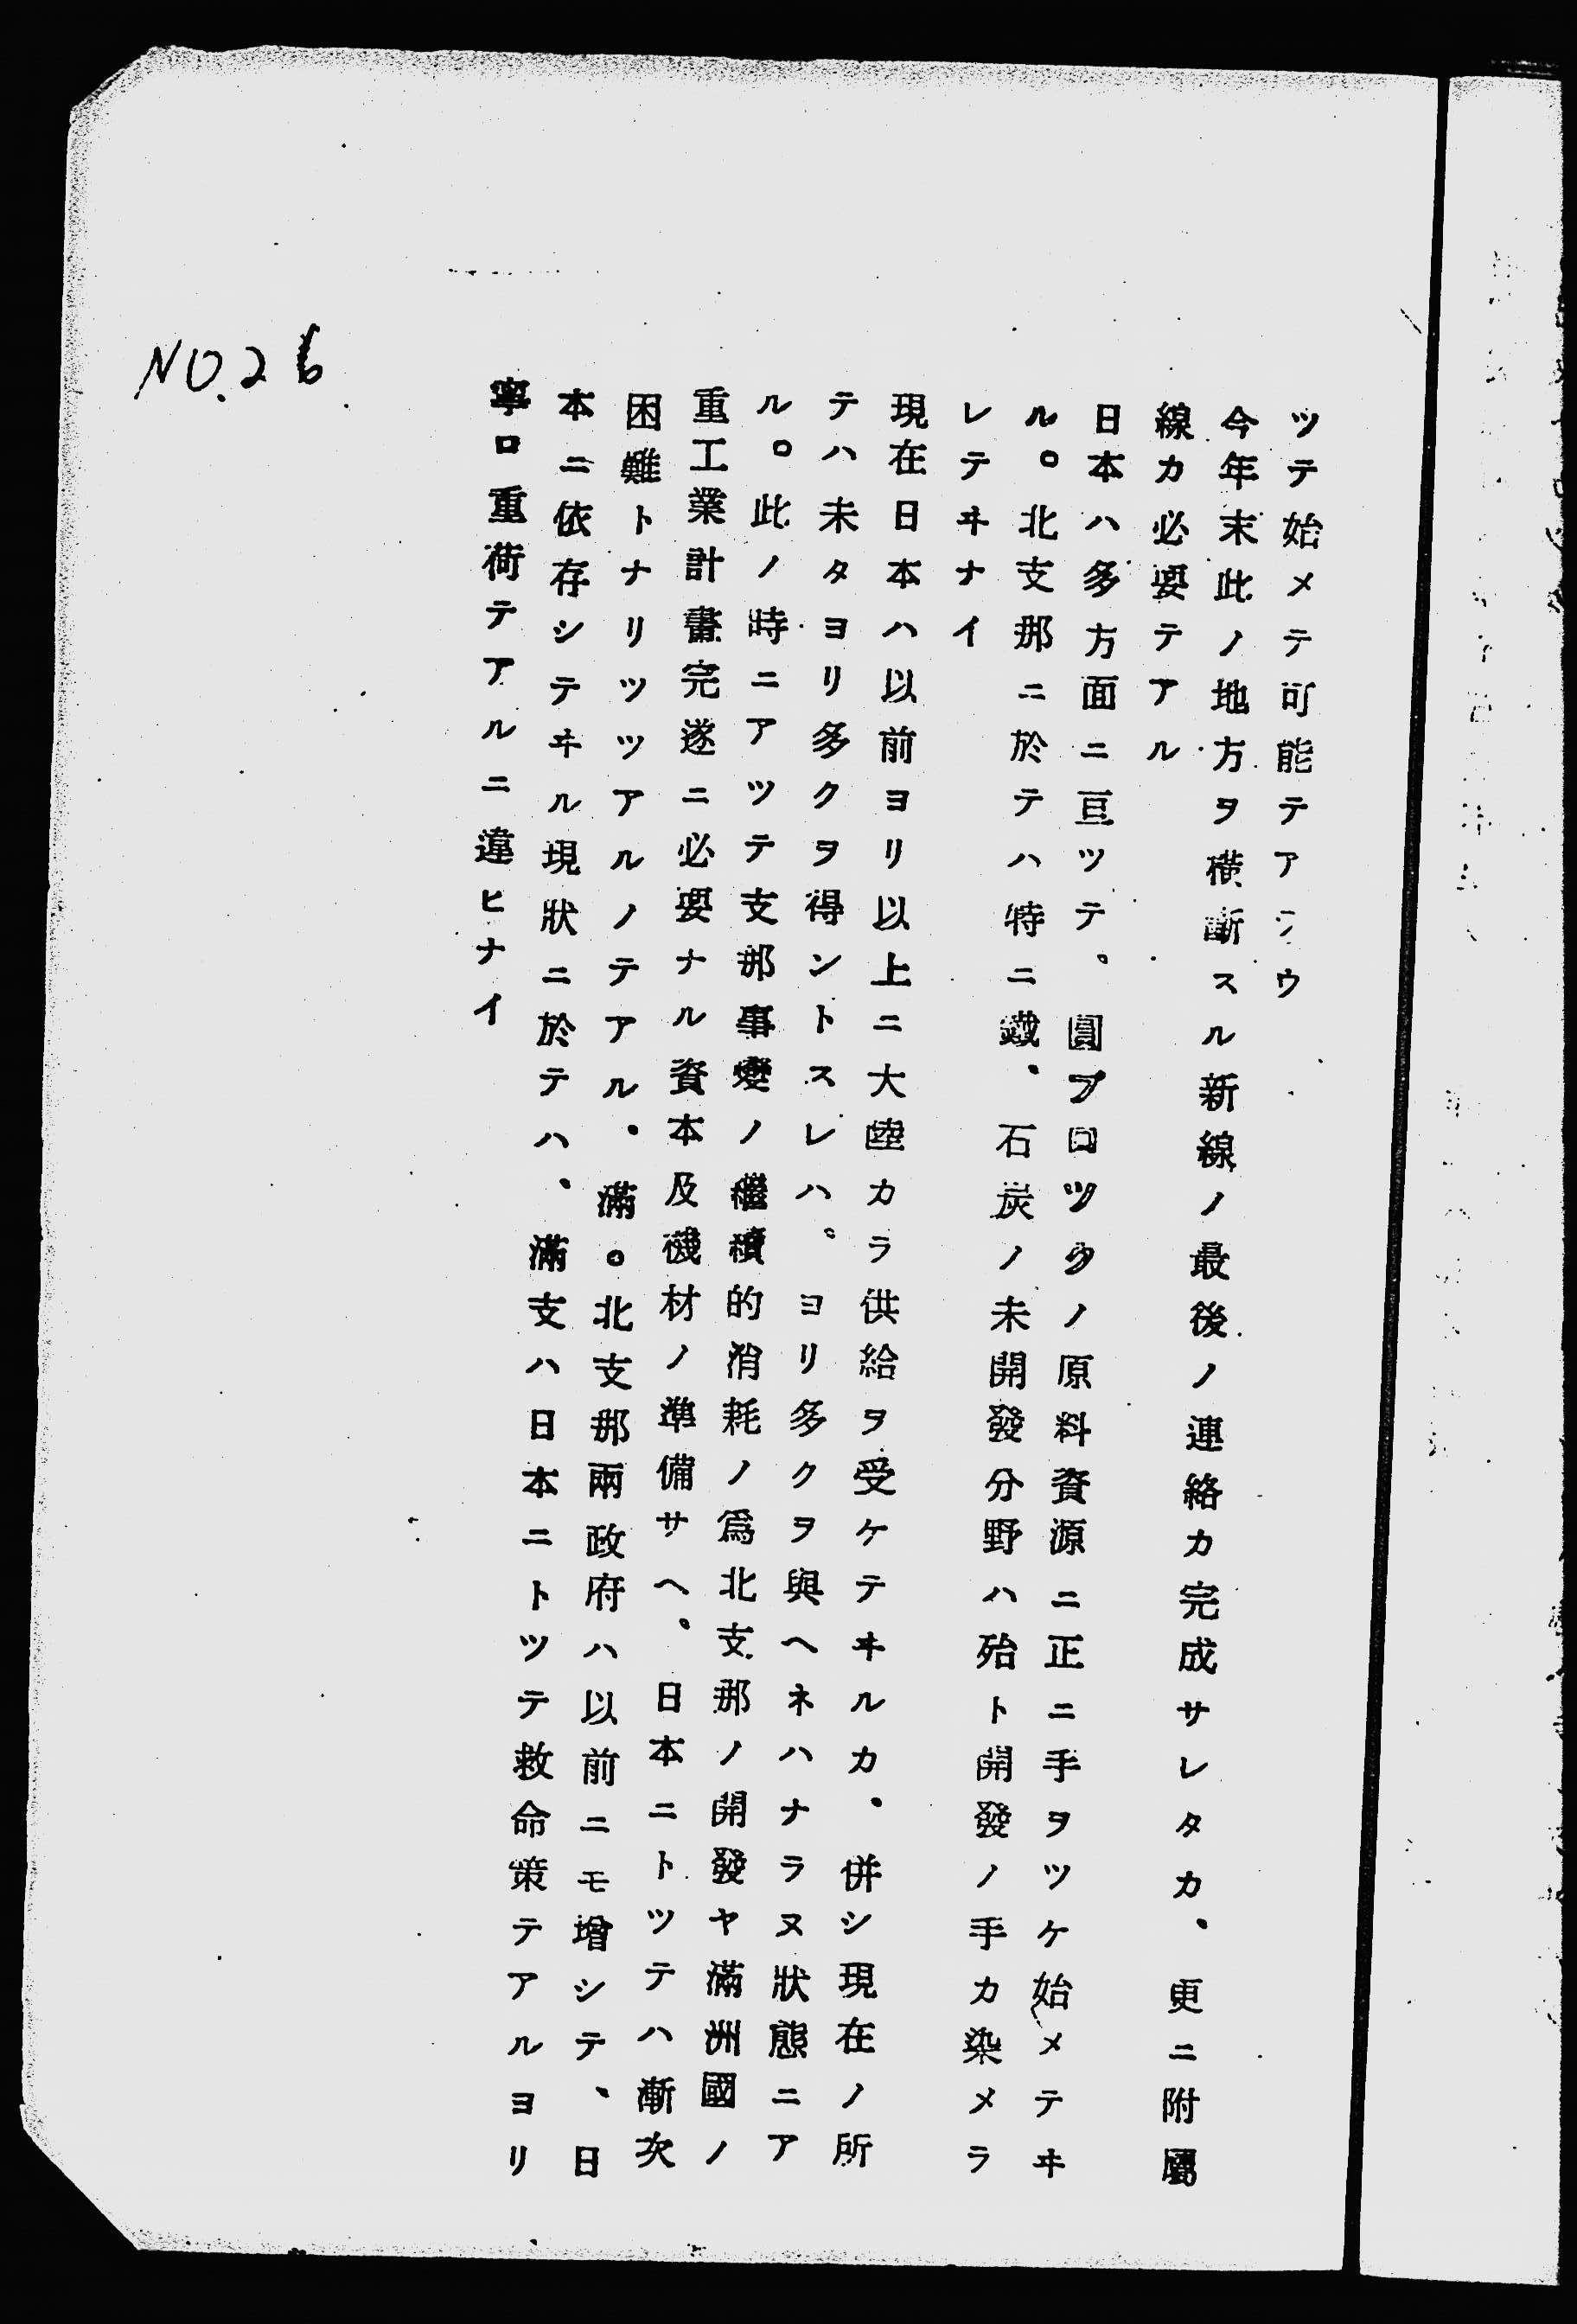 ツテ始メテ可能テアラウ
今年末此ノ地方ヲ横斷スル新線ノ最後ノ連絡カ完成サレタカ、更ニ附屬
線カ必要テアル
日本ハ多方面ニ亘ツテ、圓ブロツクノ原料資源ニ正ニ手ヲツケ始メテヰ
ル。北支那ニ於テハ特ニ鐵、石炭ノ未開發分野ハ殆ト開發ノ手カ染メラ
レテヰナイ
現在日本ハ以前ヨリ以上ニ大陸カラ供給ヲ受ケテヰルカ、併シ現在ノ所
テハ未タヨリ多クヲ得ントスレハ。ヨリ多クヲ與ヘネハナラヌ狀態ニア
ル。此ノ時ニアツテ支那事變ノ繼續的消耗ノ爲北支那ノ開發ヤ滿洲國ノ
重工業計畫完遂ニ必要ナル資本及機材ノ準備サヘ、日本ニトツテハ漸次
困難トナリツツアルノテアル、滿。北支那兩政府ハ以前ニモ增シテ、日
本ニ依存シテヰル現狀ニ於テハ、滿支ハ日本ニトツテ救命策テアルヨリ
寧ロ重荷テアルニ違ヒナイ
NO.26